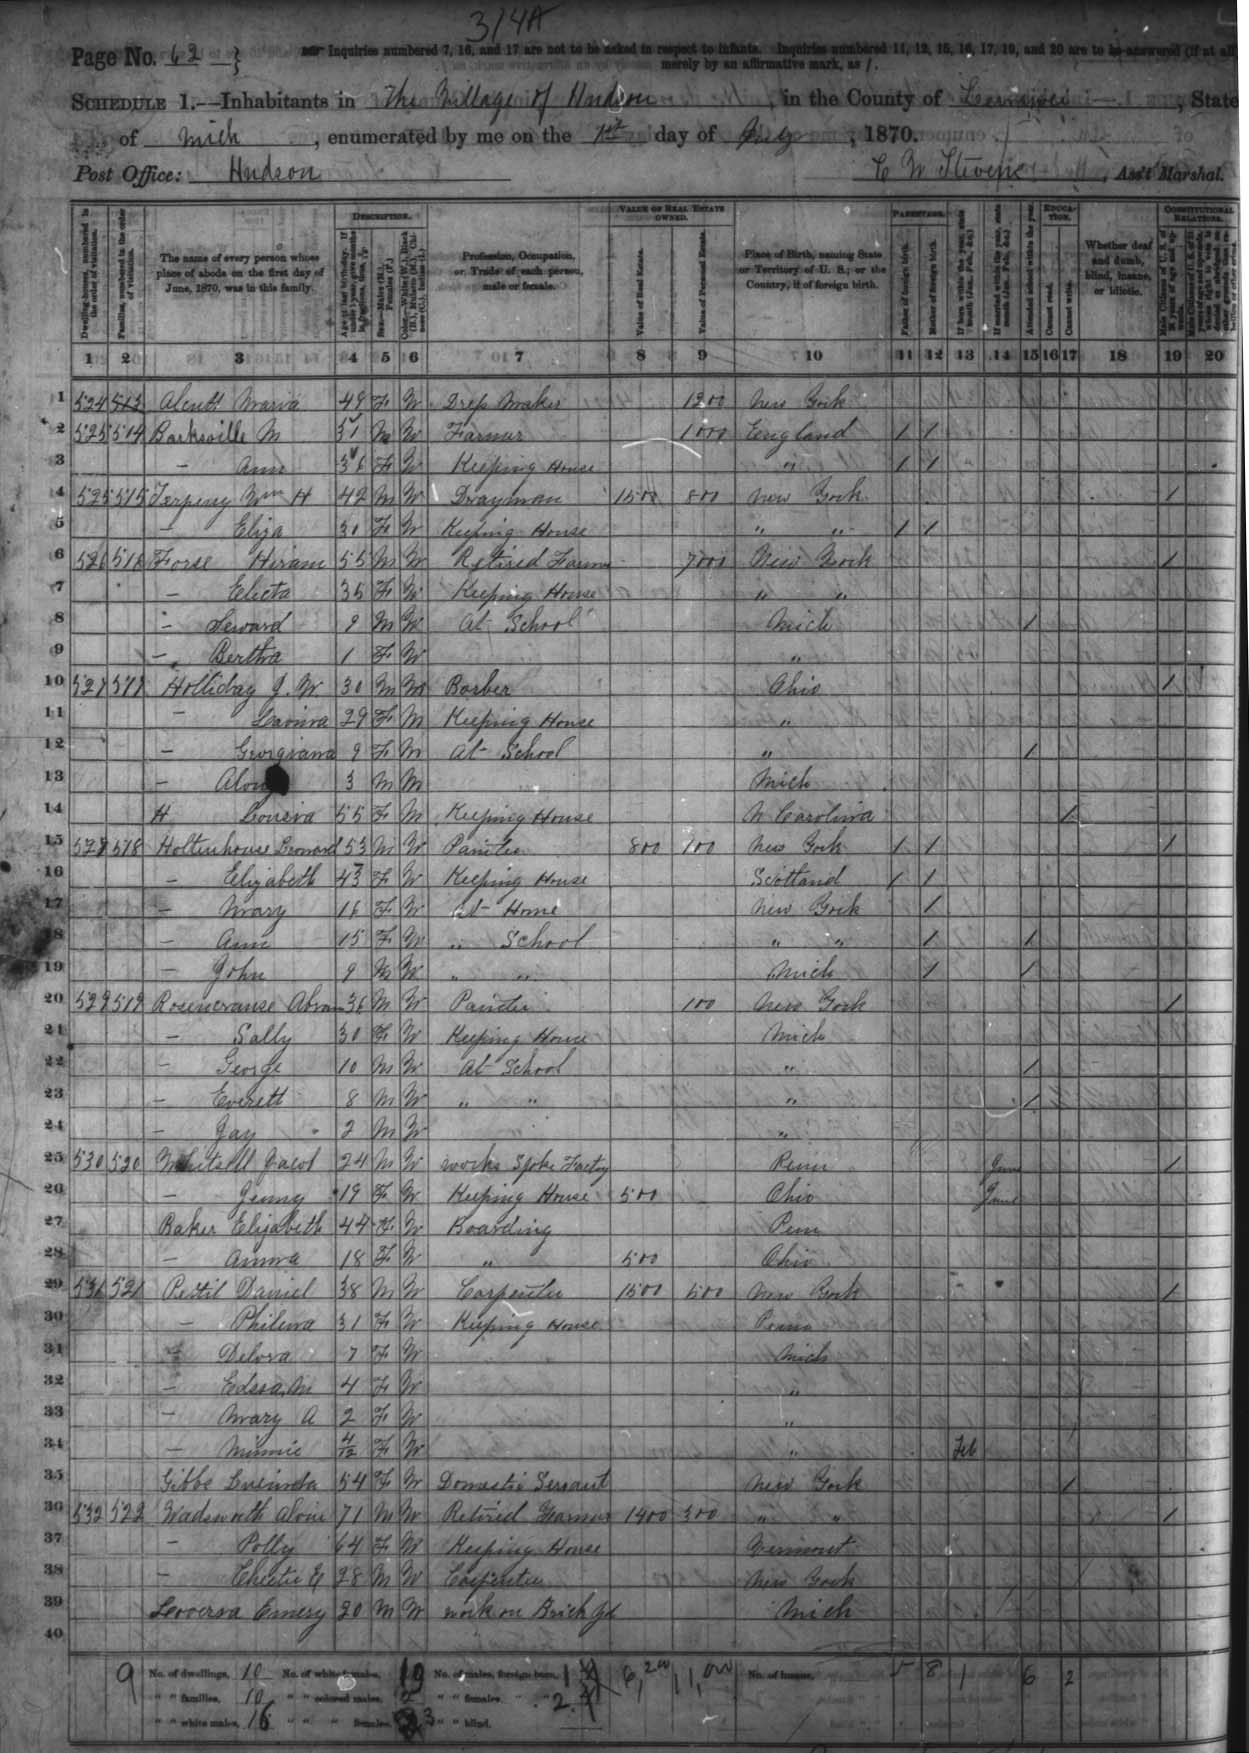 314A
Page No. 62 } Inquiries numbered 7, 16, and 17 are not to be asked in respect to infants. Inquiries numbered 11, 12, 15, 16, 17, 19, and 20 are to be answered (if at all)
merely by an affirmative mark, as /.
SCHEDULE 1.—Inhabitants in The Village of Hudson, in the County of Lenawee, State
of Mich, enumerated by me on the 1st day of July, 1870.
Post Office: Hudson C W Stevens, Ass't Marshal.
DESCRIPTION. VALUE OF REAL ESTATE OWNED. PARENTAGE. EDUCATION. CONSTITUTIONAL RELATIONS.
Dwelling-houses, numbered in the order of visitation. Families, numbered in the order of visitation. The name of every person whose place of abode on the first day of June, 1870, was in this family. Profession, Occupation, or Trade of each person, male or female. Value of Real Estate. Value of Personal Estate. Place of Birth, naming State or Territory of U. S.; or the Country, if of foreign birth. Father of foreign birth. Mother of foreign birth. Attended school within the year. Cannot read. Cannot write. Whether deaf and dumb, blind, insane, or idiotic.
1 2 3 4 5 6 7 8 9 10 11 12 13 14 15 16 17 18 19 20
1 524 513 Maria 49 F W Dress Maker 1200 New York
2 525 514 Barksville M M W Farmer 1000 England / /
3 – Ann 36 F W Keeping House " / /
4 525 515 Terpeny Wm H 42 M W Drayman 1500 800 New York /
5 – Eliza 30 F W Keeping House " " / /
6 526 516 Forse Hiram 55 M W Retired Farmer 7000 New York /
7 – Electa 35 F W Keeping House " "
8 – Seward 9 M W At School Mich /
9 – Bertha 1 F W "
10 527 517 Holliday J. W 30 M M Barber Ohio /
11 – Lavina 29 F M Keeping House "
12 – Georgiana 9 F M At School " /
13 – 3 M M Mich
14 H Louisa 55 F M Keeping House N Carolina /
15 528 518 Holtenhouse Leonard 53 M W Painter 800 100 New York / / /
16 – Elizabeth 43 F W Keeping House Scotland / /
17 – Mary 16 F W At Home New York /
18 – Ann 15 F W " School " " / /
19 – John 9 M W " " Mich / /
20 529 519 Rosencranse Abram 36 M W Painter 100 New York /
21 – Sally 30 F W Keeping House Mich
22 – George 10 M W At School " /
23 – Everett 8 M W " " " /
24 – Jay 2 M W "
25 530 520 Whitsell Jacob 24 M W works Spoke Factory Penn June /
26 – Jenny 19 F W Keeping House 500 Ohio June
27 Baker Elizabeth 44 F W Boarding Penn
28 – Anna 18 F W " 500 Ohio
29 531 521 Pettit Daniel 38 M W Carpenter 1500 500 New York /
30 – Philena 31 F W Keeping House Penn
31 – Delora 7 F W Mich
32 – M 4 F W "
33 – Mary A 2 F W "
34 – Minnie 4/12 F W " Feb
35 Gibbs Lucinda 54 F W Domestic Servant New York /
36 532 522 Wadsworth 71 M W Retired Farmer 1400 300 " " /
37 – Polly 64 F W Keeping House Vermont
38 – 28 M W Carpenter New York
39 Emery 20 M W work on Brick Yd Mich
40
9 No. of dwellings, 10 No. of white females, 19 No. of males, foreign born, 1 No. of insane, 5 8 1 6 2
" " families, 10 " " colored males, 2 " " females, " " 2
" " white males, 16 " " " females, 3 " " blind,